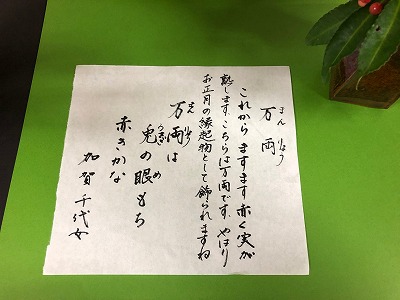 まんりょう
万両
これから ますます赤く実が
熟します。こちらは万両です。やはり
お正月の縁起物として飾られますね
まんりょう
万両は
うさぎ め
兎の眼もち
赤きかな
加賀千代女